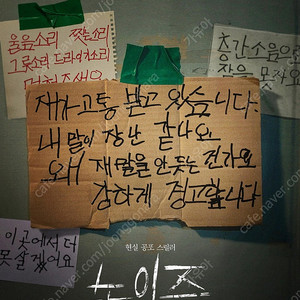 울음소리 짝는소리
그릇소리 드라이기소리
층간소음으로
잠을 못자요
제가 고통 받고 있습니다.
내 말이 장난 같나요
왜 제 말을 안 듣는 건가요
강하게 경고합니다
이곳에서 더
못 살겠어요
현실 공포 스릴러
노이즈